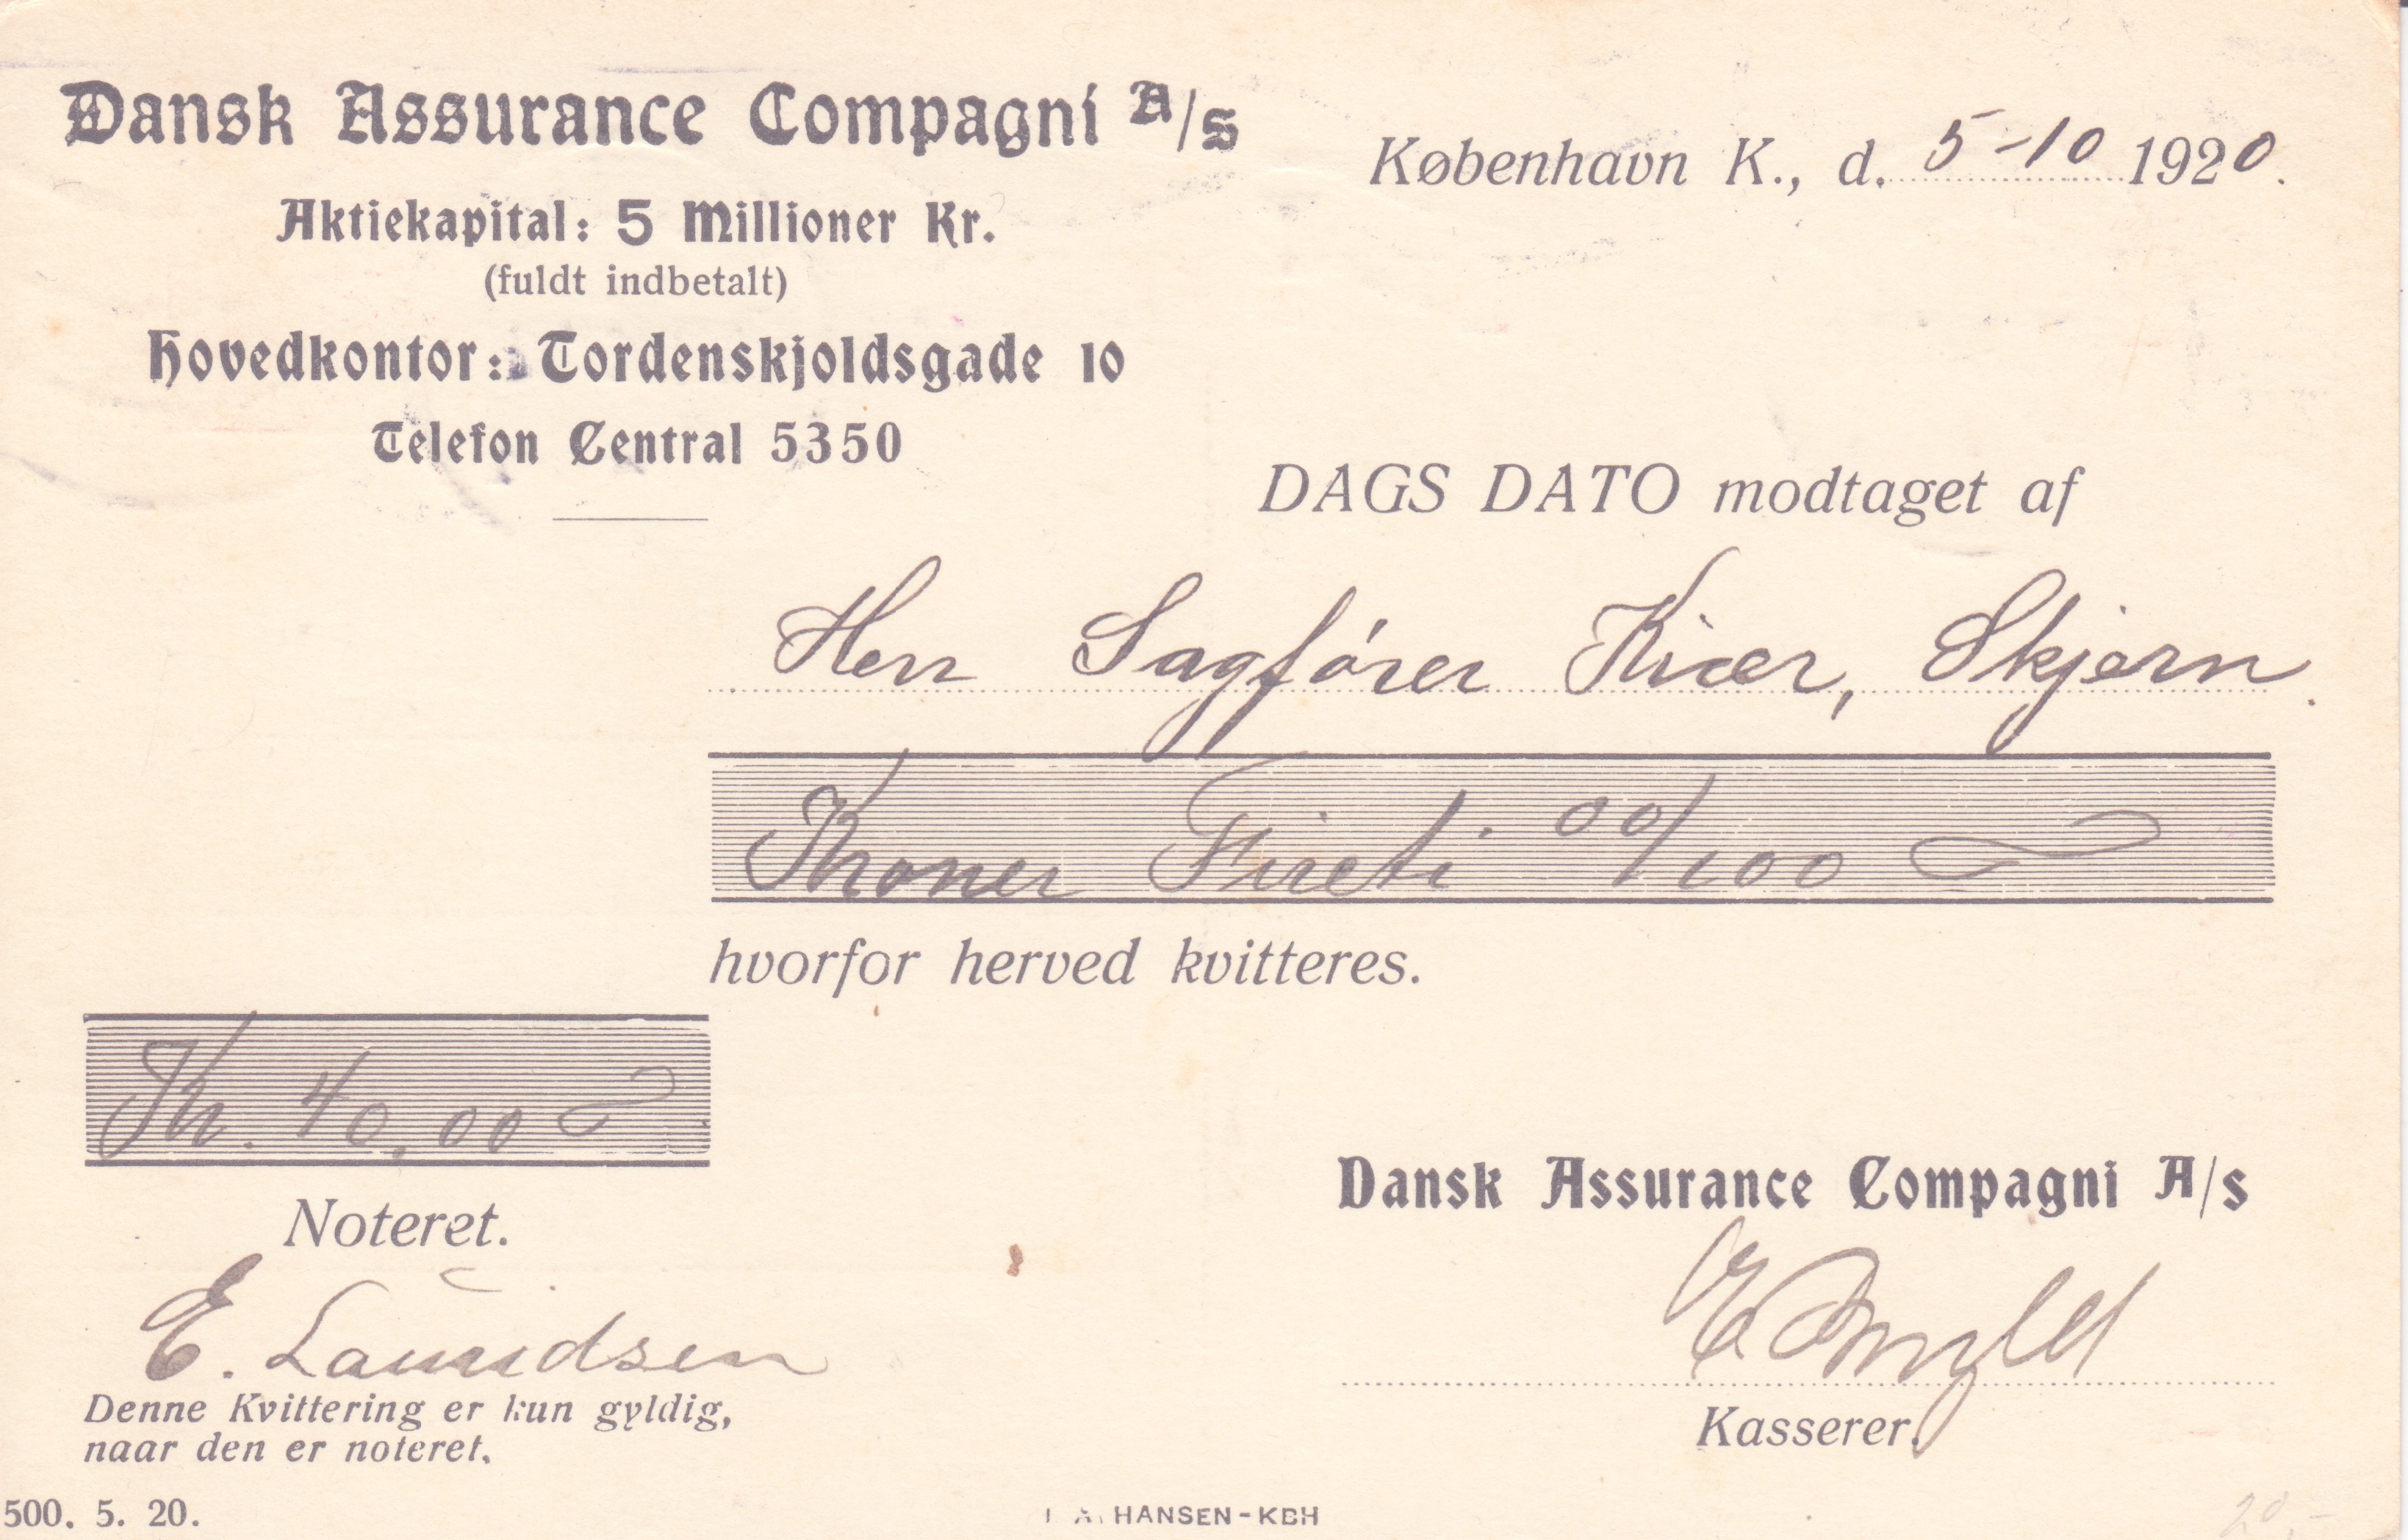 Dansk Assurance Compagni A/s
Aktiekapital: 5 Millioner Kr.
(fuldt indbetalt)
Hovedkontor: Tordenskjoldsgade 10
Telefon Central 5350
København K., d. 5-10 1920.
DAGS DATO modtaget af
Herr Sagfører Kiær, Skjern.
Kroner Fireti 00/100
hvorfor herved kvitteres.
Kr. 40,00
Noteret.
E. Lauridsen
Denne Kvittering er kun gyldig,
naar den er noteret.
Dansk Assurance Compagni A/s
Kasserer.
500. 5. 20.
HANSEN-KBH
20,-